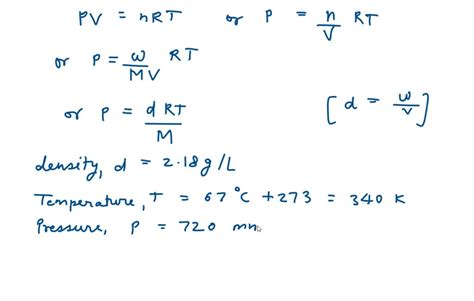 PV = nRT or P = n/V RT
or P = w/MV RT
or P = dRT/M [d = w/V]
density, d = 2.18 g/L
Temperature, T = 67°C + 273 = 340 K
Pressure, P = 720 mm